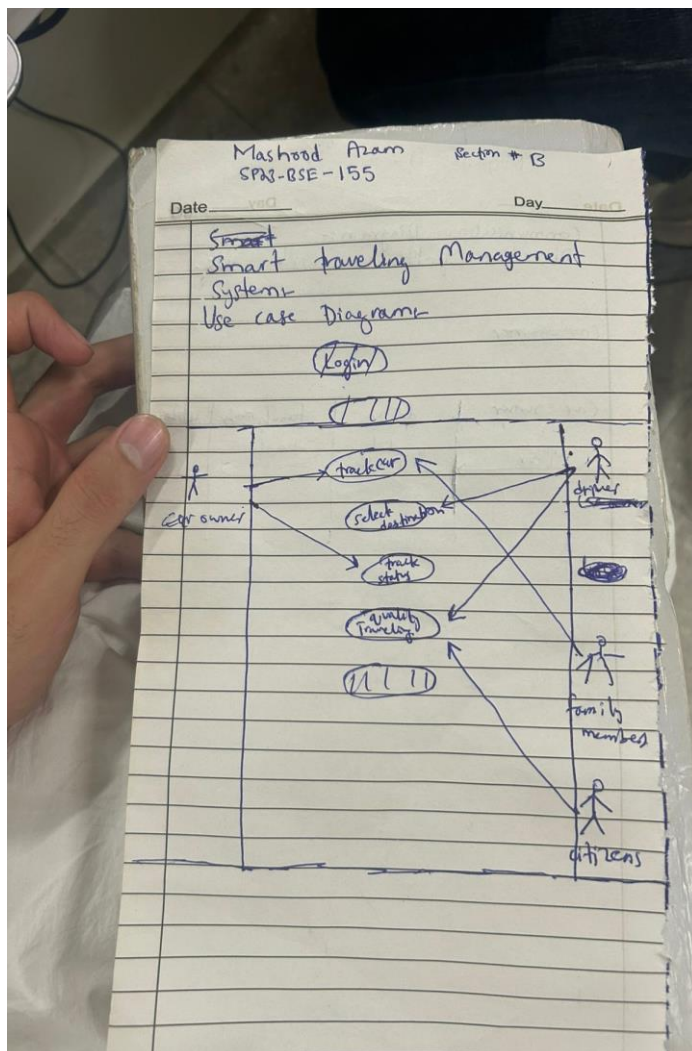 Mashood Azam Section # B
SP23-BSE-155
Date Day
Smart
Smart traveling Management
System
Use case Diagram
Login
track car
driver
car owner
select
destination
track
status
quality
Traveling
family
member
citizens